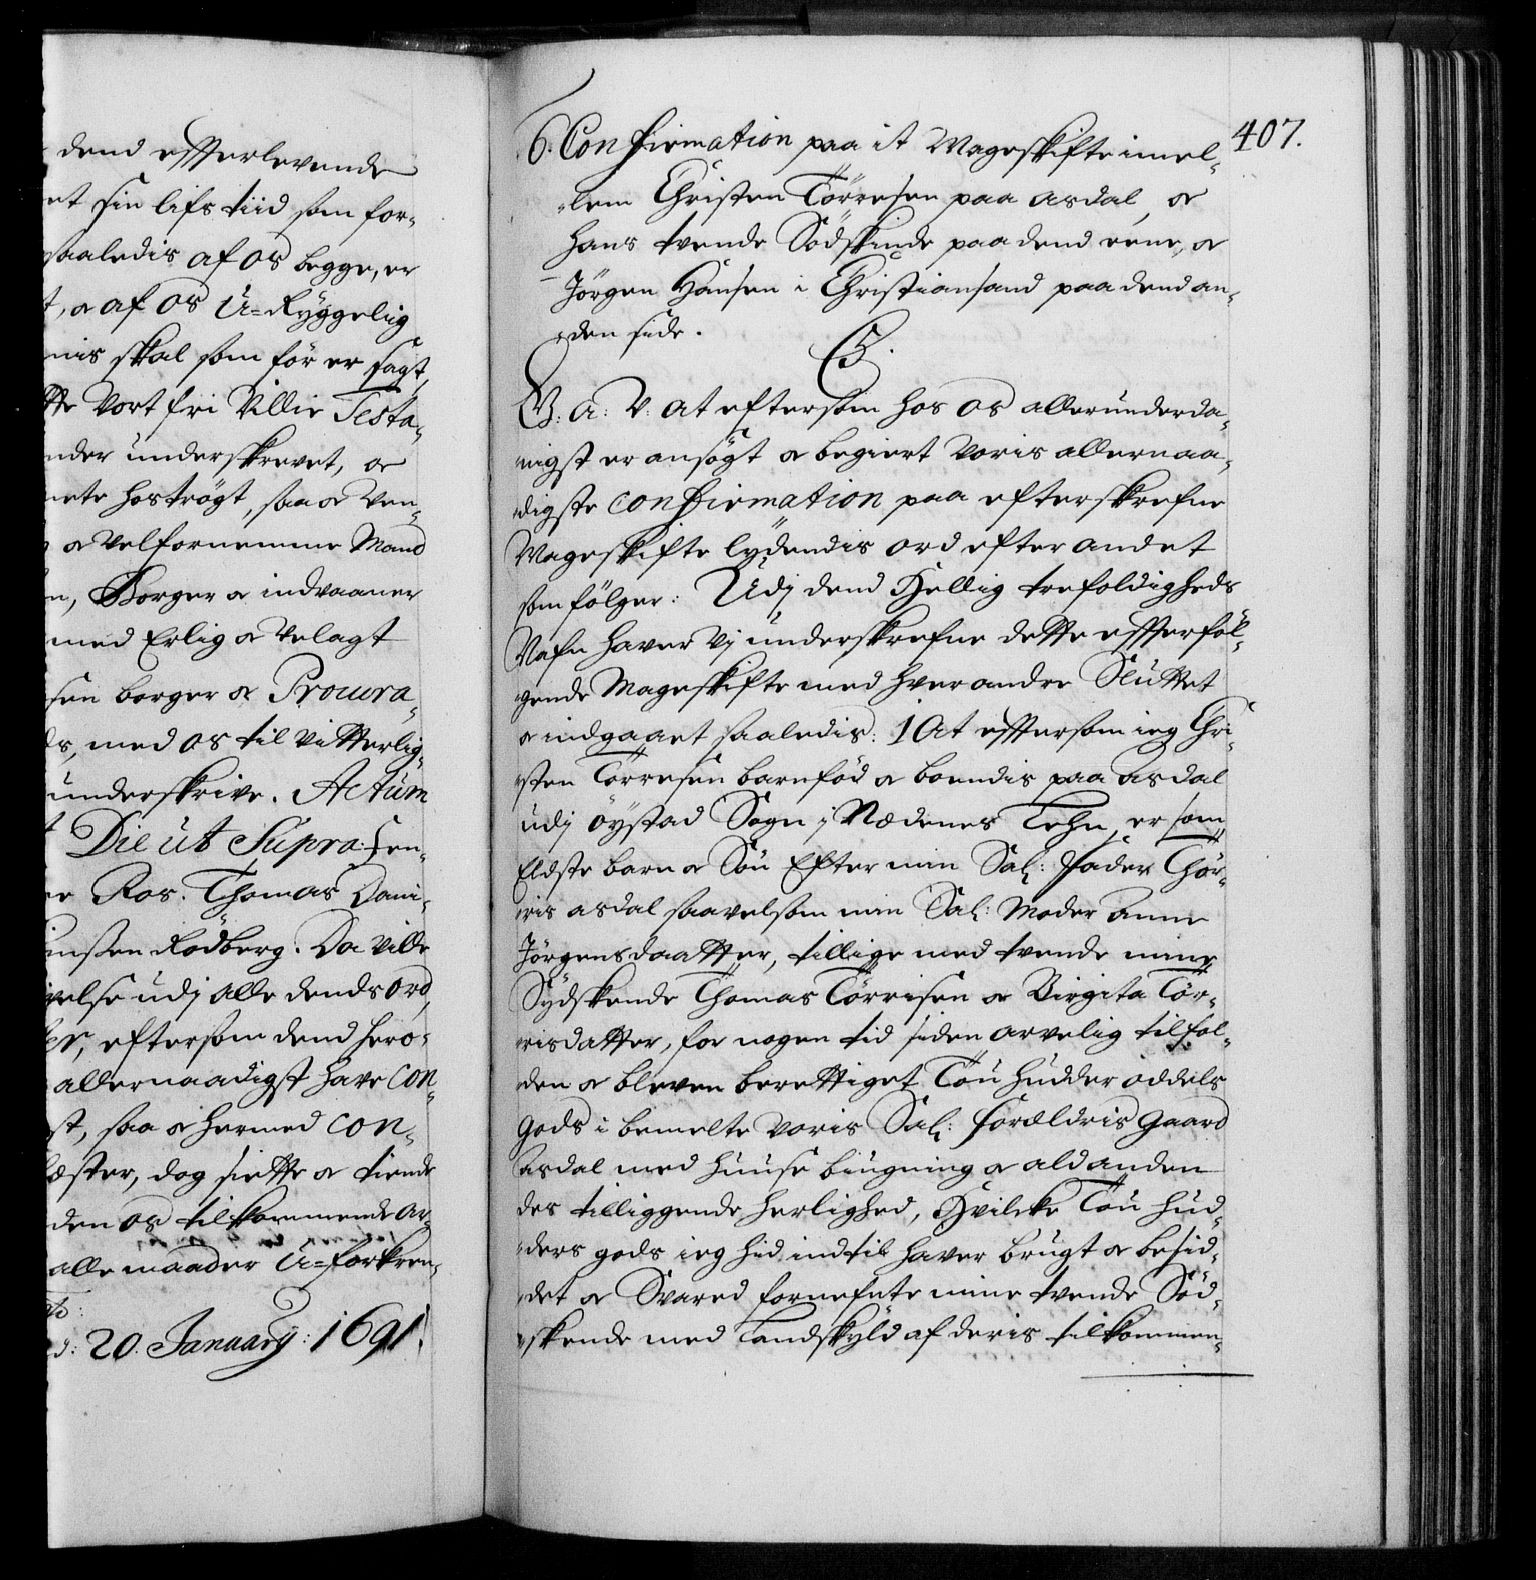 dend effterlevende
et sin lifs tiid som for-
saaledis af os begge, er
t, og af os U=Ryggelig
nis skal som för er sagt,
tte Vort fri Villie Testa-
nder underskrevet, og
nete hoströgt, saa og Ven-
og Velfornemme Mand
n, Borger og indvaaner
med Erlig og Velagt
sen borger og Procura-
ds, med os til Vitterlig-
underskrive. Actum
Die ut Supra:
er Ros. Thomas Dani-
ensen Rödberg. Da Ville
ivelse udj alle dends ord,
er, eftersom dend hero-
allernaadigst have Con-
st, saa og hermed con-
æster, dog siette og tiende
den os tilkommende Ar-
alle maader U=forkren-
d: 20. January: 1691.
407.
6. Confirmation paa it Mageskifte imel-
lem Christen Törresen paa Asdal, og
hans tvende Södskinde paa dend eene, og
Jörgen Hansen i Christiansand paa dend an-
den side.
C5.
G: A: V: At eftersom hos os allerunderda-
nigst er ansögt og begiert Voris allernaa-
digste confirmation paa efterskrefne
Mageskifte lydendis ord efter andet
som fölger: Udj dend Hellig trefoldigheds
Nafn haver Vj underskrefne dette effterföl-
gende Mageskifte med hver andre Sluttet
og indgaaet saaledis: 1 At effter som ieg Chri-
sten Törresen barnfød og boendis paa Asdal
udj Öystad Sogn j Nedenes Lehn, er som
Eldste barn og Sön Efter min Sal: Fader Thör-
ris Asdal saavelsom min Sal: Moder Anne
Jörgensdaatter, tillige med tvende mine
Sydskende Thomas Törrisen og Birgita Tör-
risdatter, for nogen tid siden arvelig tilfal-
den og bleven berettiget Tou hudder oddels
gods i bemelte Voris Sal: Forældris Gaard
Asdal med huuse biugning og ald anden
des tilliggende herlighed, Hvilcke Tou hud-
ders gods ieg hid indtil haver brugt og besid-
det og Svared fornefnte mine tvende Sød-
skende med Landskyld af deris tilkommen-